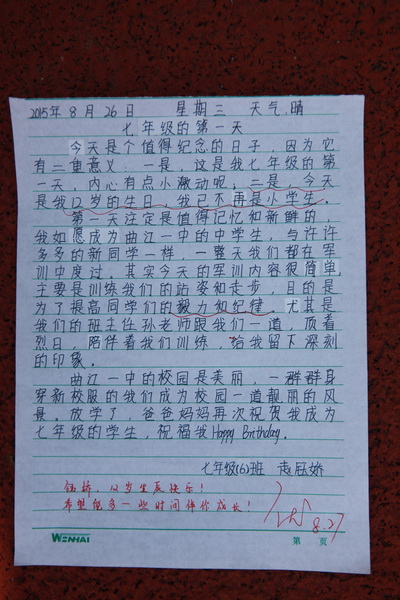 2015年8月26日 星期三 天气.晴
七年级的第一天
今天是个值得纪念的日子，因为它
有二重意义.一是，这是我七年级的第
一天，内心有点小激动呢。二是，今天
是我12岁的生日，我已不再是小学生。
第一天注定是值得记忆和新鲜的，
我如愿成为曲江一中的中学生，与许许
多多的新同学一样，一整天我们都在军
训中度过。其实今天的军训内容很简单，
主要是训练我们的站姿和走步，目的是
为了提高同学们的毅力和纪律。尤其是
我们的班主任孙老师跟我们一道，顶着
烈日，陪伴着我们训练，给我留下深刻
的印象。
曲江一中的校园是美丽，一群群身
穿新校服的我们成为校园一道靓丽的风
景。放学了，爸爸妈妈再次祝贺我成为
七年级的学生，祝福我Happy Brithday。
七年级(6)班
12岁生辰快乐！
希望能多一些时间伴你成长！
8.27
WENHAI 第 页